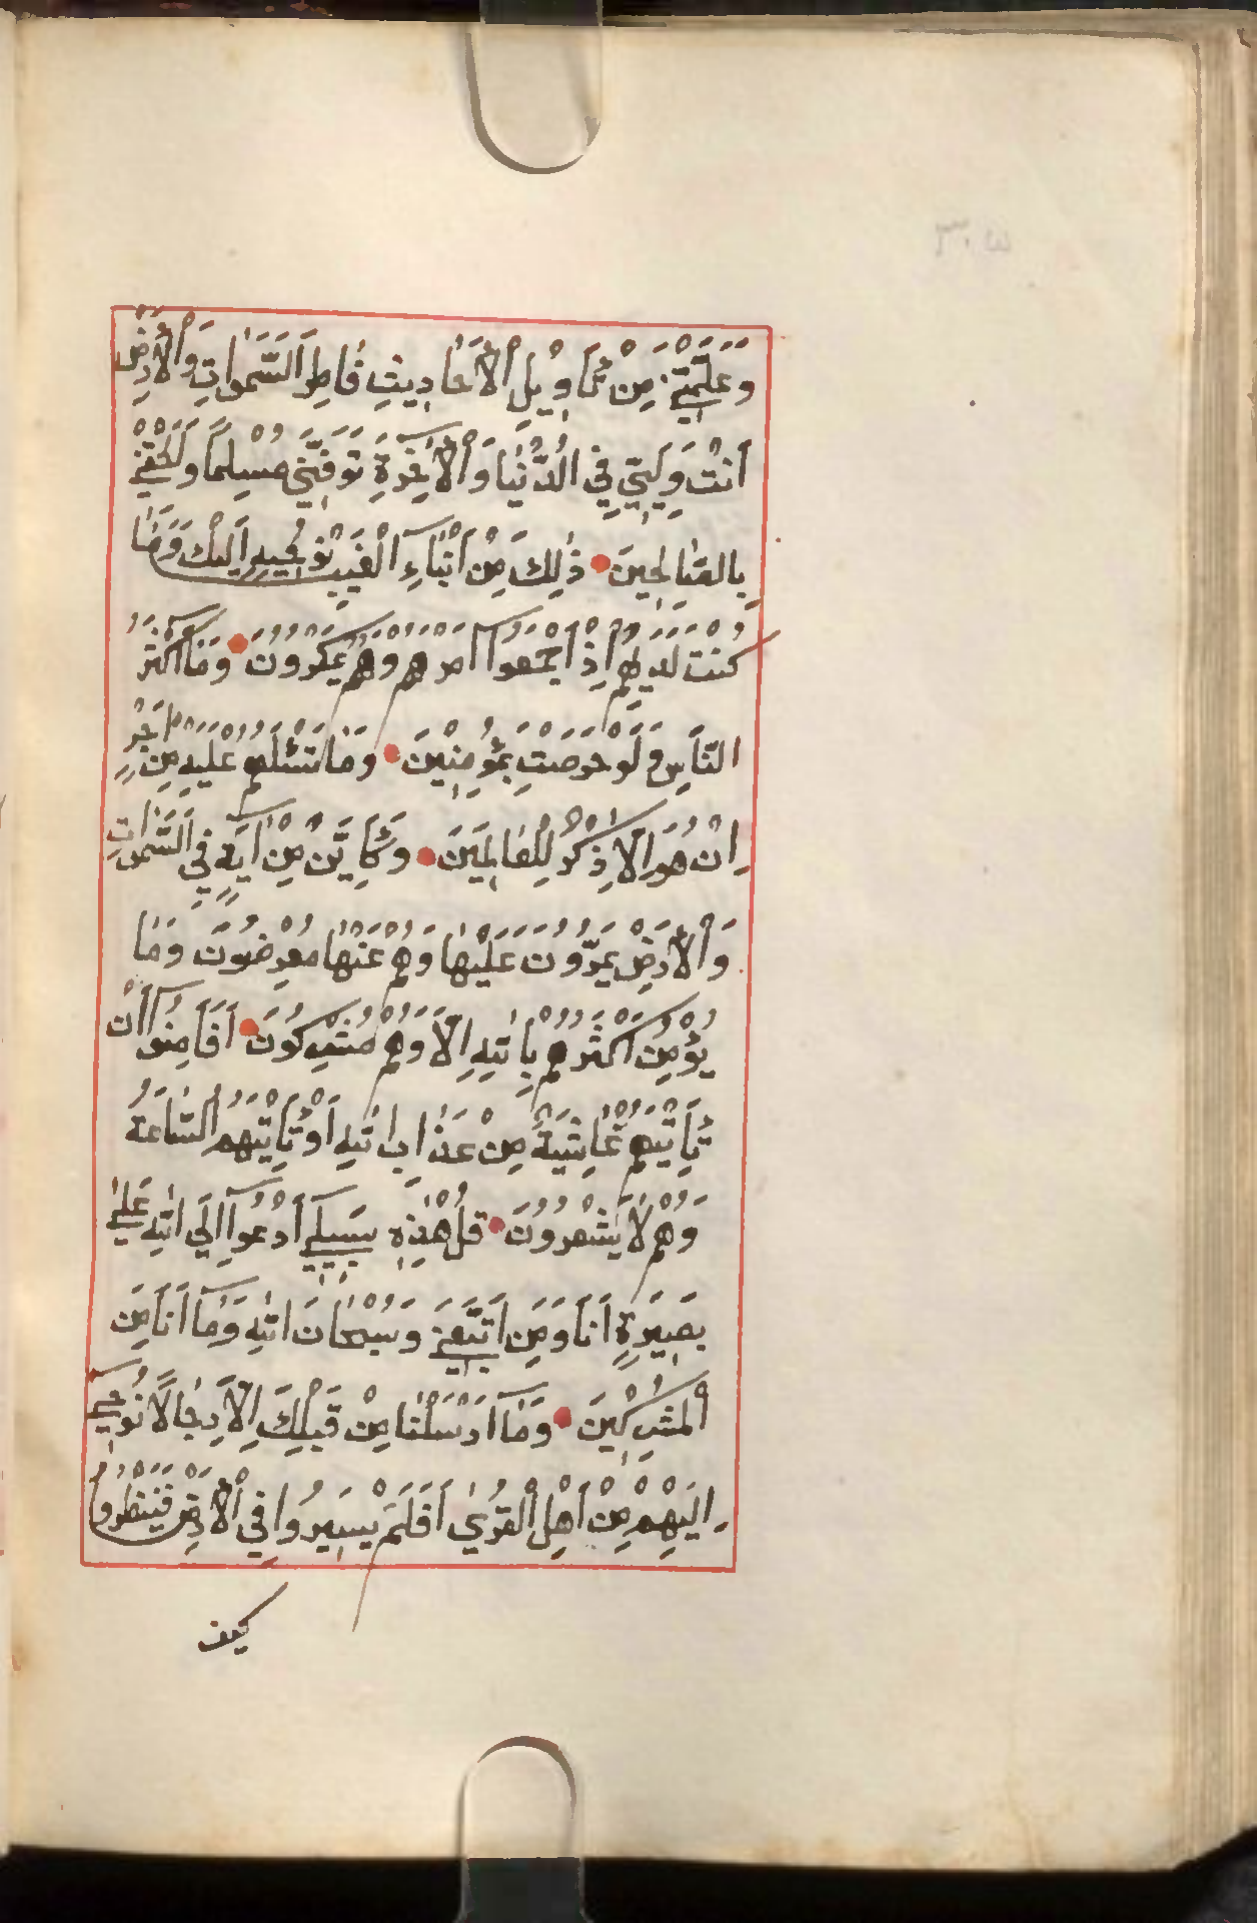 وَعَلَّمْتَنِي مِنْ تَأْوِيلِ الْأَحَادِيثِ فَاطِرَ السَّمٰوَاتِ وَالْأَرْضِ
أَنْتَ وَلِيِّي فِي الدُّنْيَا وَالْآخِرَةِ تَوَفَّنِي مُسْلِمًا وَأَلْحِقْنِي
بِالصَّالِحِينَ ذٰلِكَ مِنْ أَنْبَاءِ الْغَيْبِ نُوحِيهِ إِلَيْكَ وَمَا
كُنْتَ لَدَيْهِمْ إِذْ أَجْمَعُوا أَمْرَهُمْ وَهُمْ يَمْكُرُونَ وَمَا أَكْثَرُ
النَّاسِ وَلَوْ حَرَصْتَ بِمُؤْمِنِينَ وَمَا تَسْئَلُهُمْ عَلَيْهِ مِنْ أَجْرٍ
إِنْ هُوَ إِلَّا ذِكْرٌ لِلْعَالَمِينَ وَكَأَيِّنْ مِنْ اٰيَةٍ فِي السَّمٰوَاتِ
وَالْأَرْضِ يَمُرُّونَ عَلَيْهَا وَهُمْ عَنْهَا مُعْرِضُونَ وَمَا
يُؤْمِنُ أَكْثَرُهُمْ بِاللّٰهِ إِلَّا وَهُمْ مُشْرِكُونَ أَفَأَمِنُوا أَنْ
تَأْتِيَهُمْ غَاشِيَةٌ مِنْ عَذَابِ اللّٰهِ أَوْ تَأْتِيَهُمُ السَّاعَةُ
وَهُمْ لَا يَشْعُرُونَ قُلْ هٰذِهِ سَبِيلِي أَدْعُوا إِلَى اللّٰهِ عَلٰى
بَصِيرَةٍ أَنَا وَمَنِ اتَّبَعَنِي وَسُبْحَانَ اللّٰهِ وَمَا أَنَا مِنَ
الْمُشْرِكِينَ وَمَا أَرْسَلْنَا مِنْ قَبْلِكَ إِلَّا رِجَالًا نُوحِي
إِلَيْهِمْ مِنْ أَهْلِ الْقُرٰى أَفَلَمْ يَسِيرُوا فِي الْأَرْضِ فَيَنْظُرُوا
كيف